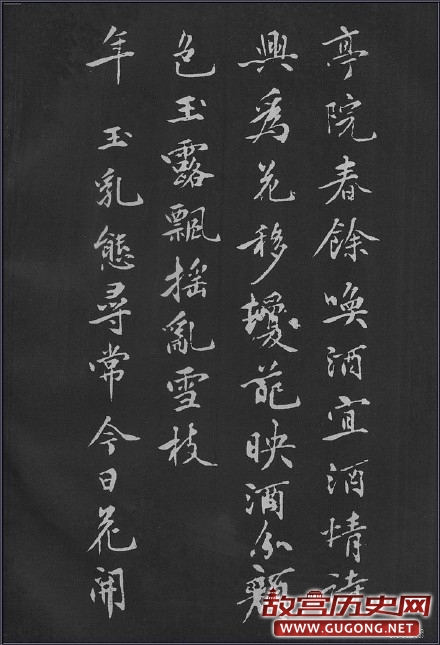 亭院春餘喚酒宜酒情詩
興爲花移瓊葩映酒分顔
色玉露飄摇亂雪枝
年 玉乳態尋常今日花開
故宫历史网
WWW.GUGONG.NET